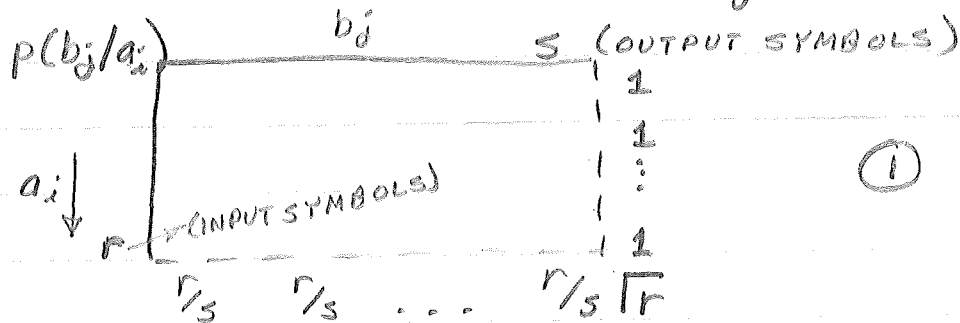 p(b_j/a_i) b_j s (OUTPUT SYMBOLS)
1
1
a_i ↓ ⋮ ①
r (INPUT SYMBOLS) 1
r/s r/s . . . r/s r